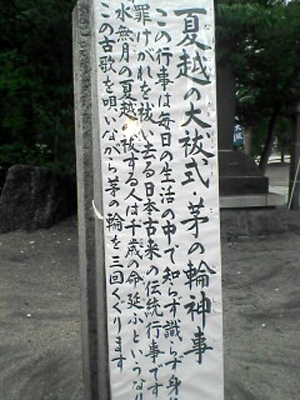 夏越の大祓式・茅の輪神事
この行事は毎日の生活の中で知らず識らず身の
罪けがれを祓い去る日本古来の伝統行事です
水無月の夏越の祓する人は千歳の命延ふというなり
この古歌を唄いながら茅の輪を三回くぐります